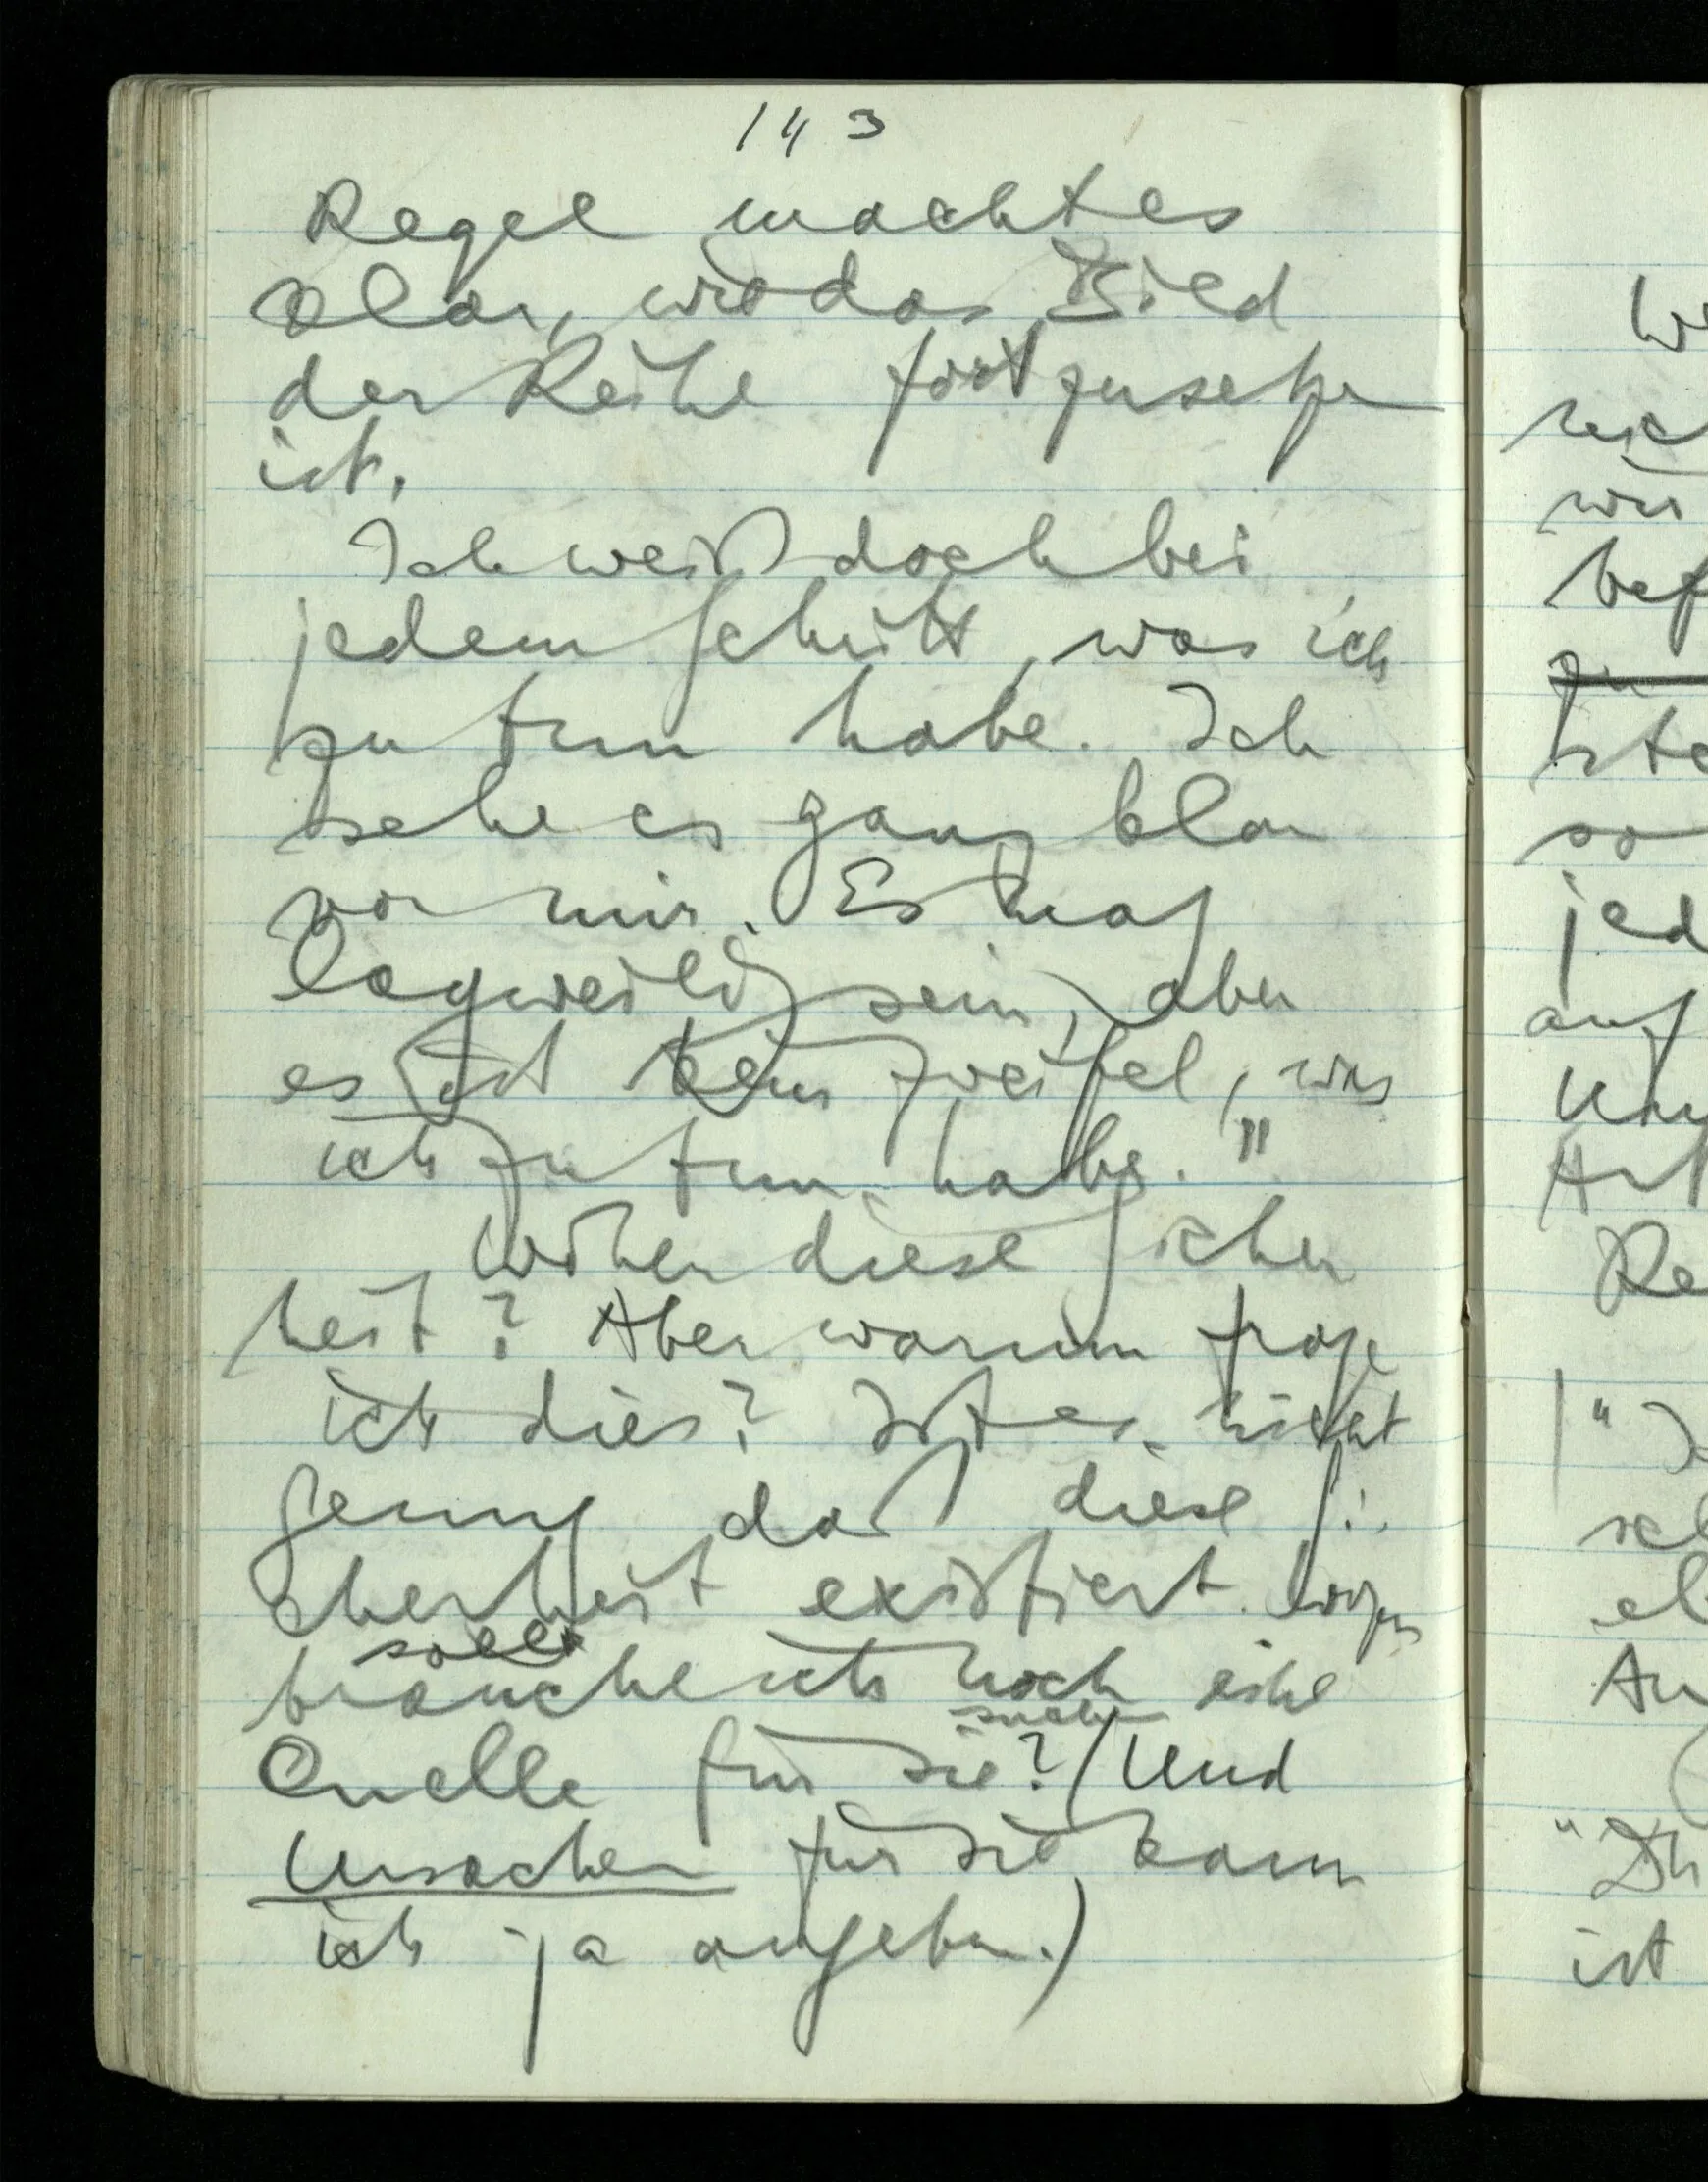 143
Regel macht es
klar, wie das Bild
der Reihe fortzusetzen
ist.
Ich weiß doch bei
jedem Schritt, was ich
zu tun habe. Ich
sehe es ganz klar
vor mir. Es mag
langweilig sein, aber
es ist kein Zweifel, was
ich zu tun habe."
Woher diese Sicher
heit? Aber warum frage
ich dies? Ist es nicht
genug daß diese Si
cherheit existiert wozu
soll
brauche ich noch eine
suchen
Quelle für sie? (Und
Ursachen für sie kann
ich ja angeben.)
jed
auf
"Di
ist